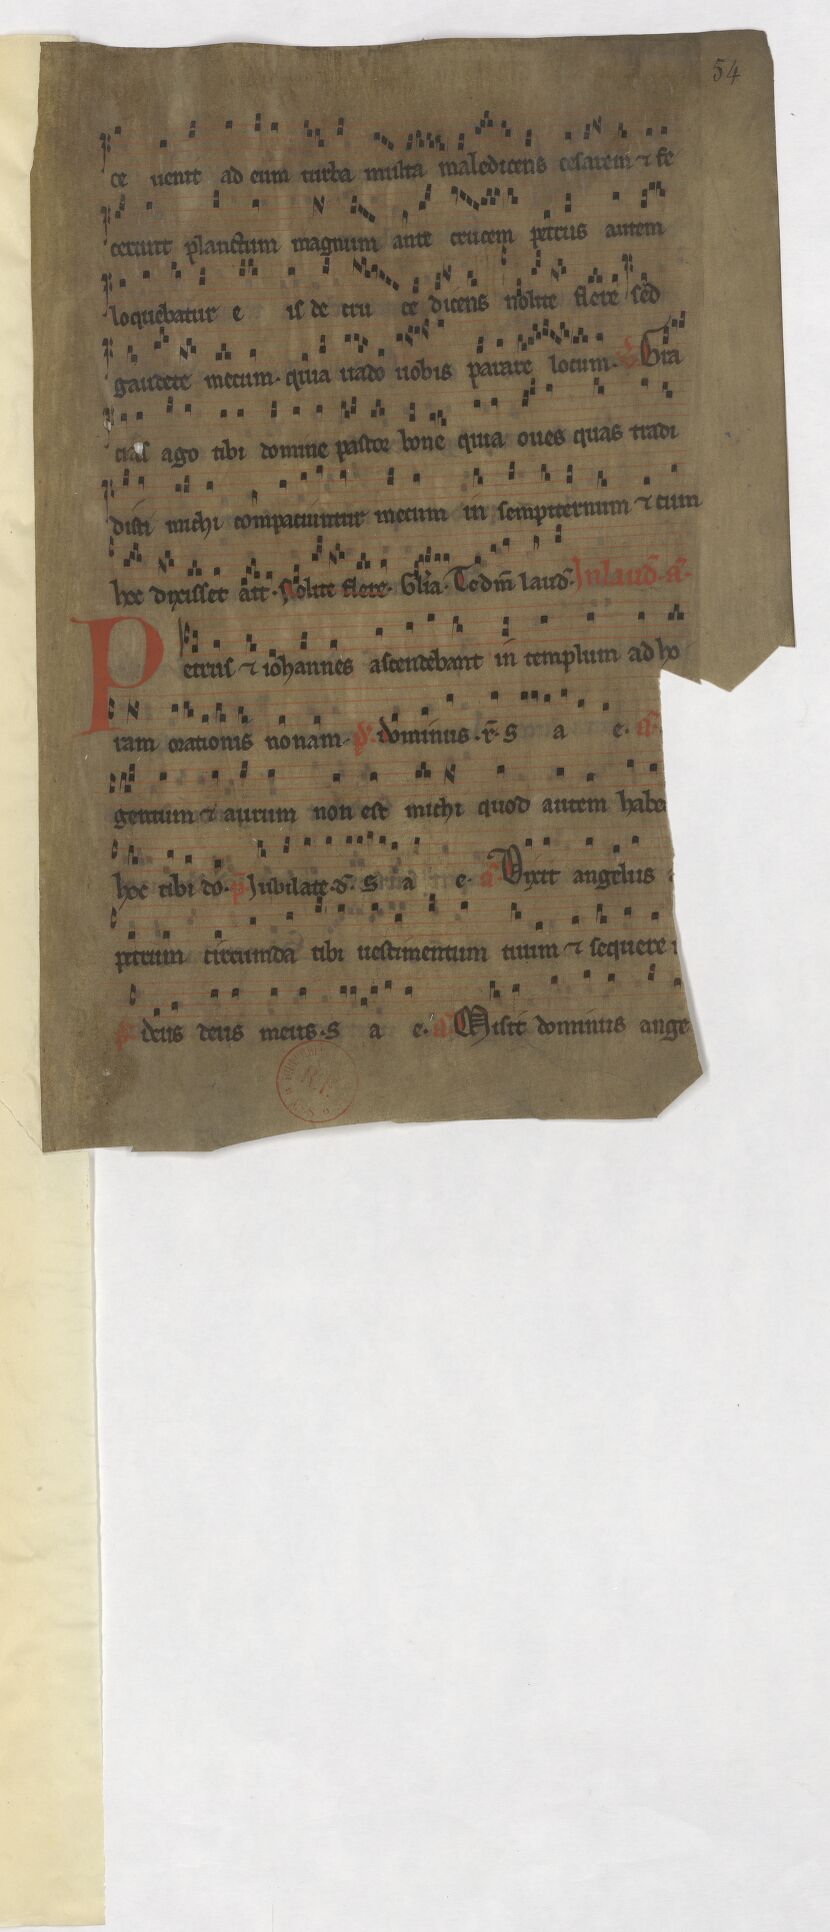 54
ce uenit ad eum turba multa maledicens cesarem ⁊ fe
cerunt planctum magnum ante crucem petrus autem
loquebatur e is de cru ce dicens nolite flere sed
gaudete mecum · quia uado uobis parare locum · Gra
cias ago tibi domine pastor bone quia oues quas tradi
disti michi compaciuntur mecum in sempiternum ⁊ cum
hec dixisset ait · Nolite flere · Gl̄ia · Te dm̄ laud̄ · In laud̄ · a͞ ·
Petrus ⁊ iohannes ascendebant in templum ad ho
ram orationis nonam · p̄s · dominus · r̄ · s a e · a͞
gentum ⁊ aurum non est michi quod autem habe
hoc tibi do · p̄s Iubilate · d̄ · s a e · a͞ Dixit angelus
petrum circumda tibi uestimentum tuum ⁊ sequere
p̄s · deus deus meus · s a e · a͞ Misit dominus ange